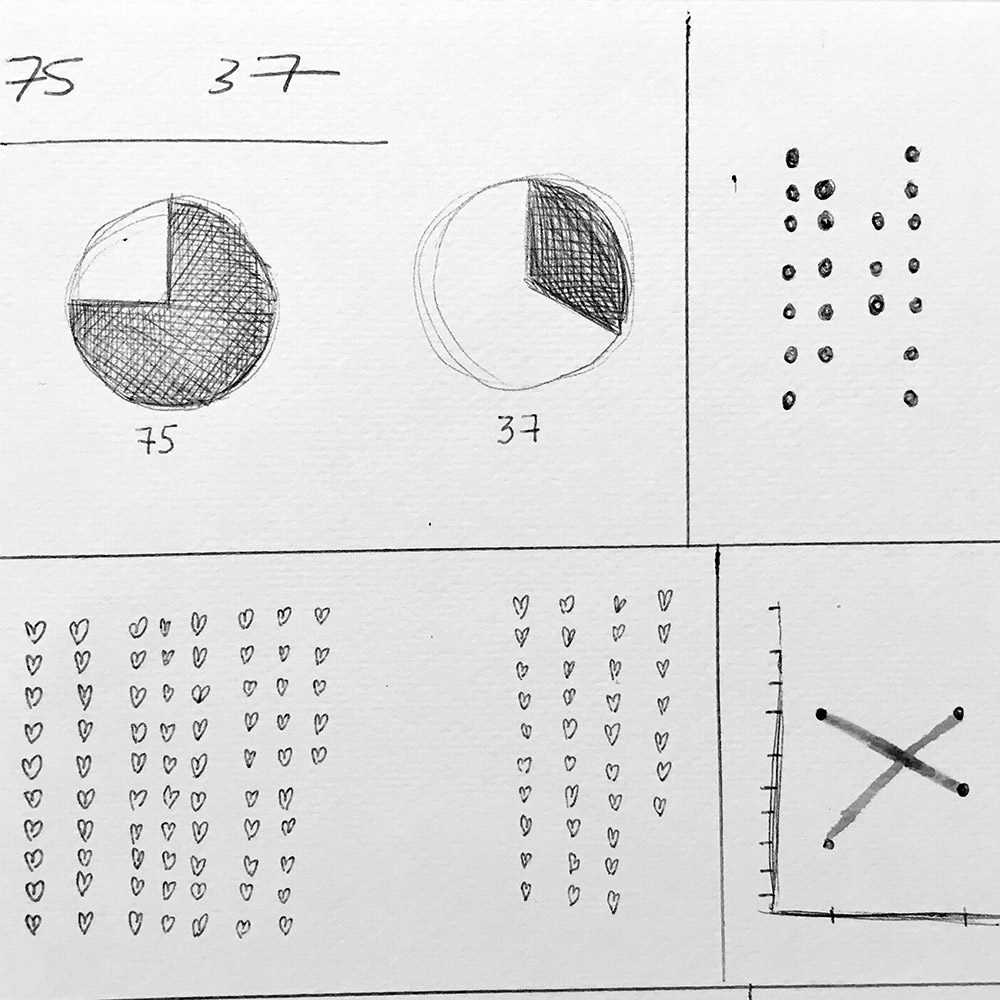 75 37
75 37